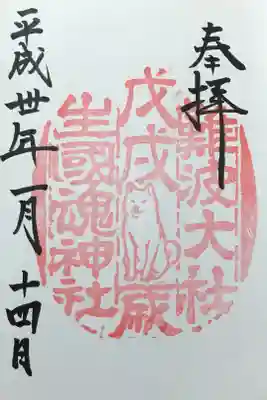 奉拝
難波大社
戊戌歳
生國魂神社
平成卅年一月十四日